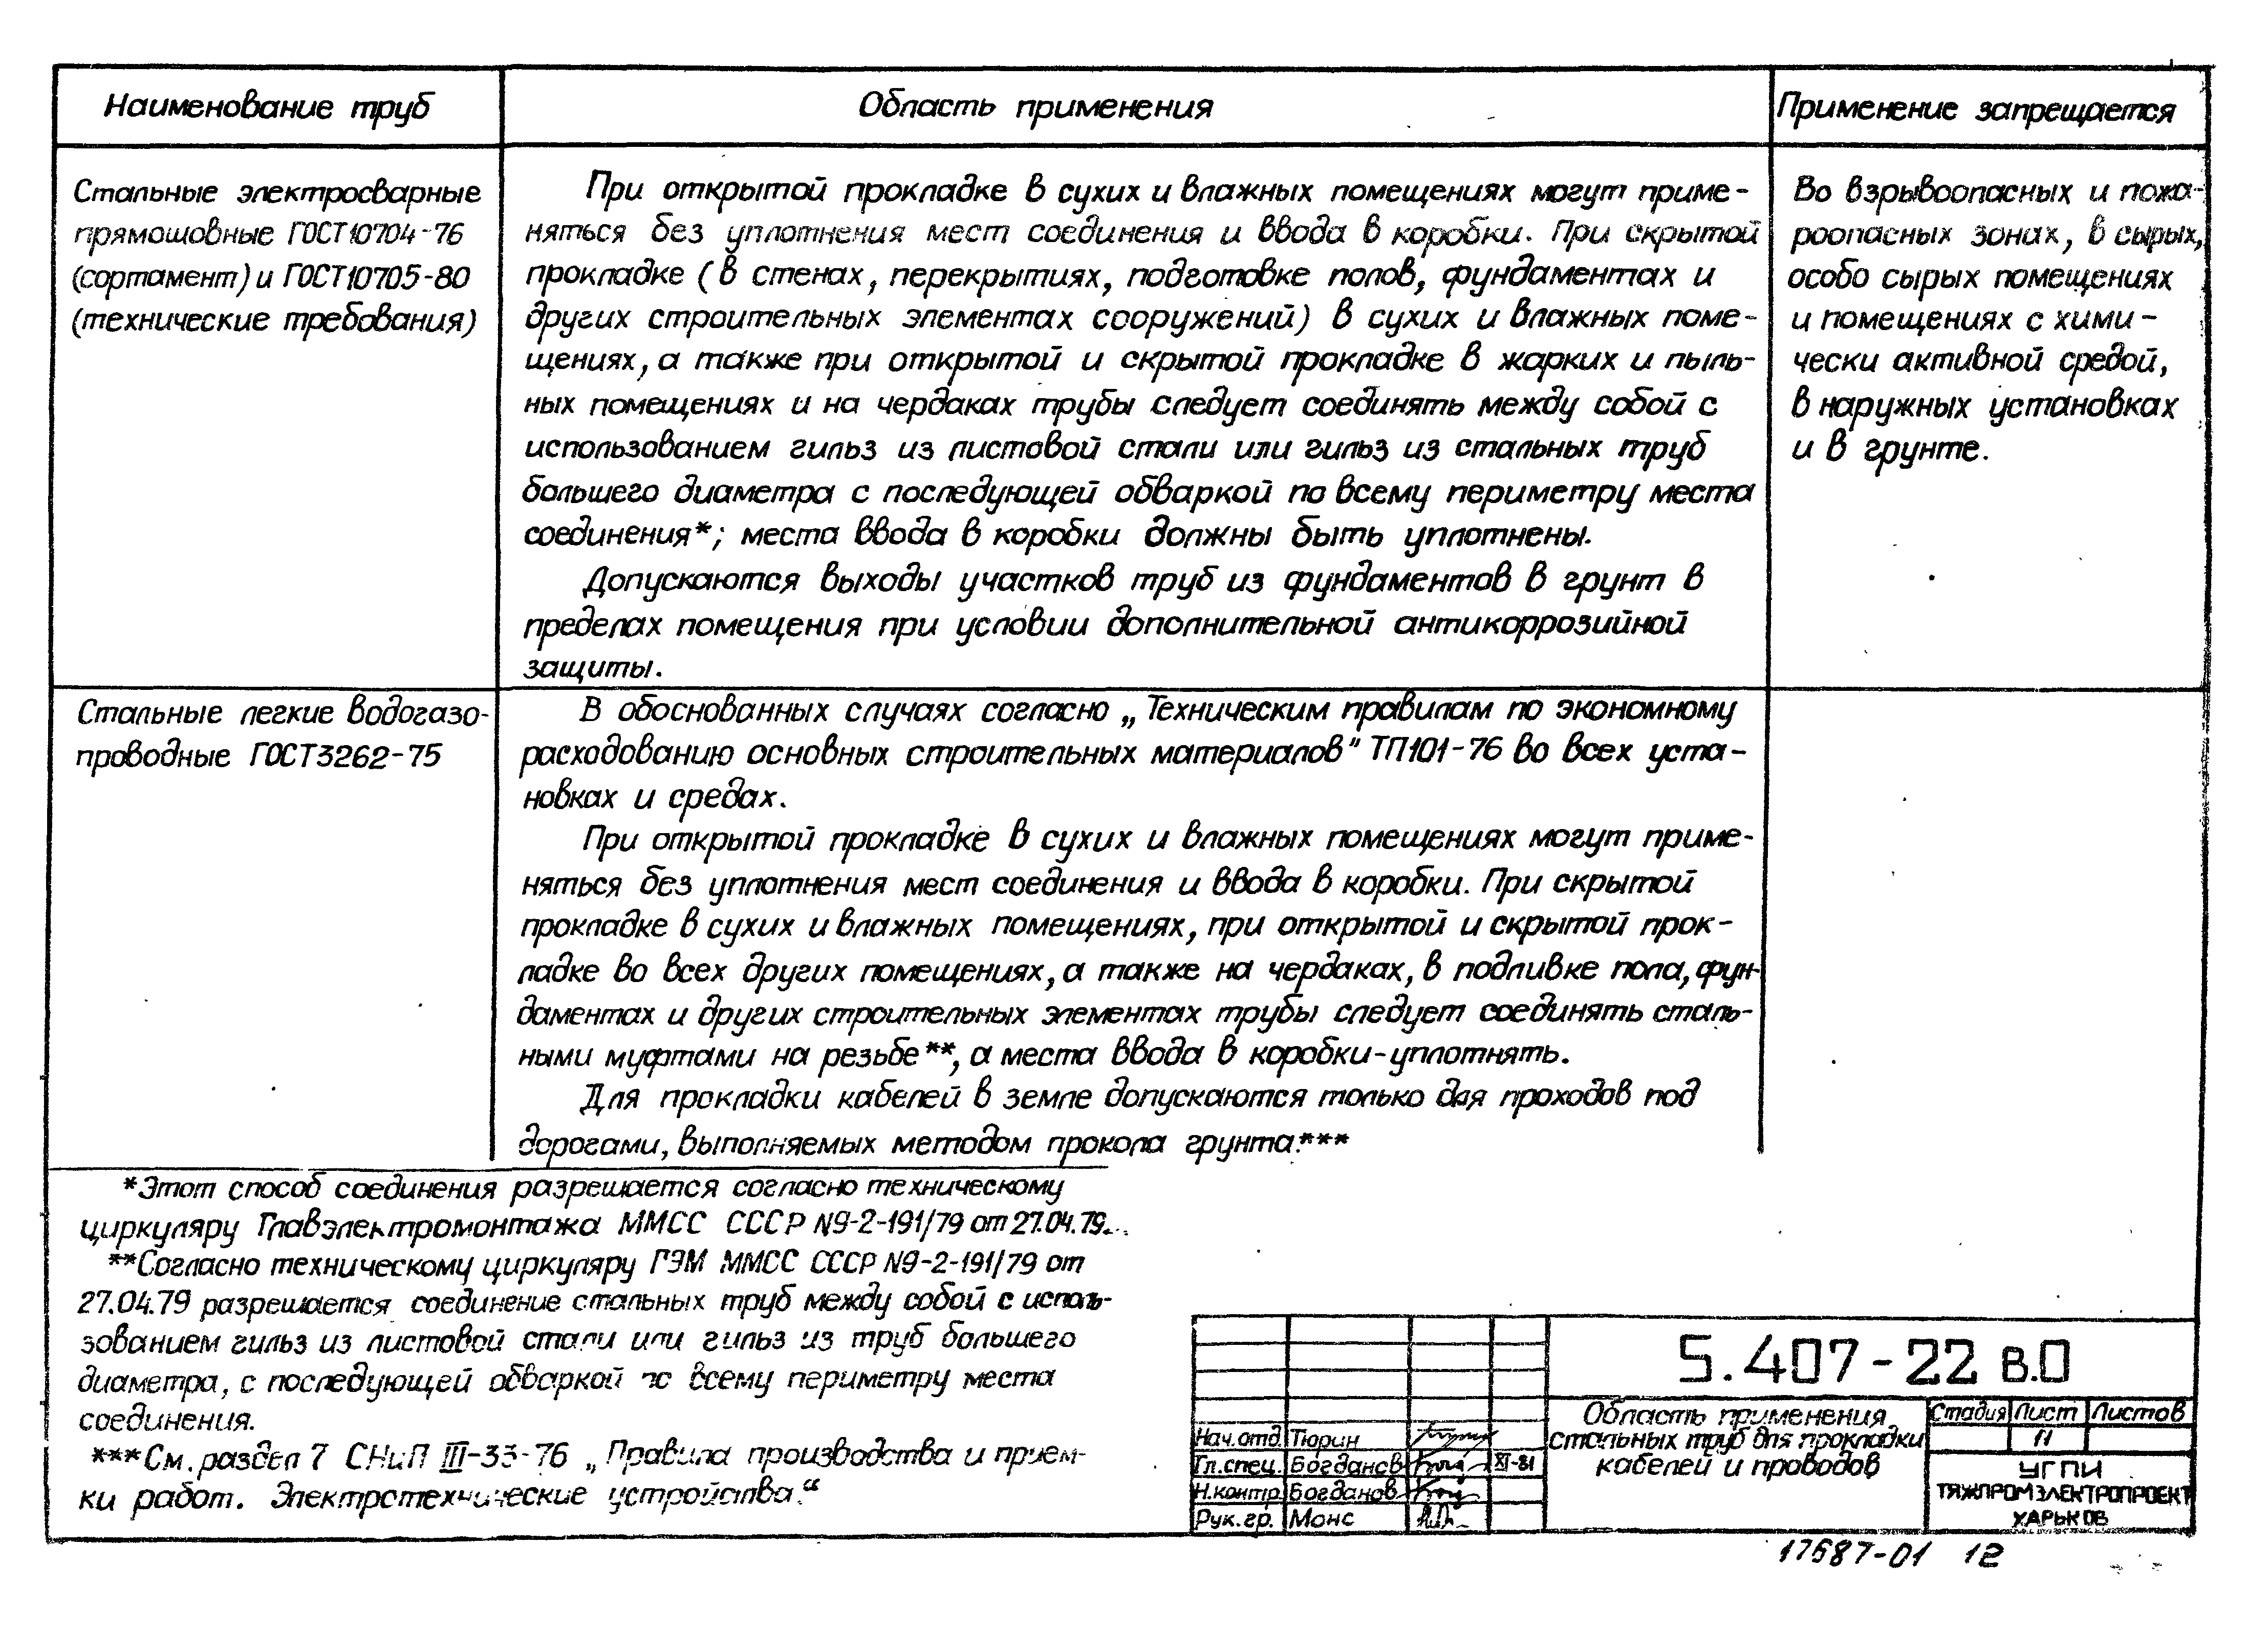 Наименование труб
Область применения
Применение запрещается
Стальные электросварные
прямошовные ГОСТ10704-76
(сортамент) и ГОСТ10705-80
(технические требования)
При открытой прокладке в сухих и влажных помещениях могут приме-
няться без уплотнения мест соединения и ввода в коробки. При скрытой
прокладке (в стенах, перекрытиях, подготовке полов, фундаментах и
других строительных элементах сооружений) в сухих и влажных поме-
щениях, а также при открытой и скрытой прокладке в жарких и пыль-
ных помещениях и на чердаках трубы следует соединять между собой с
использованием гильз из листовой стали или гильз из стальных труб
большего диаметра с последующей обваркой по всему периметру места
соединения*; места ввода в коробки должны быть уплотнены.
Допускаются выходы участков труб из фундаментов в грунт в
пределах помещения при условии дополнительной антикоррозийной
защиты.
Во взрывоопасных и пожа-
роопасных зонах, в сырых,
особо сырых помещениях
и помещениях с хими-
чески активной средой,
в наружных установках
и в грунте.
Стальные легкие водогазо-
проводные ГОСТ3262-75
В обоснованных случаях согласно „Техническим правилам по экономному
расходованию основных строительных материалов" ТП101-76 во всех уста-
новках и средах.
При открытой прокладке в сухих и влажных помещениях могут приме-
няться без уплотнения мест соединения и ввода в коробки. При скрытой
прокладке в сухих и влажных помещениях, при открытой и скрытой прок-
ладке во всех других помещениях, а также на чердаках, в подливке пола, фун-
даментах и других строительных элементах трубы следует соединять сталь-
ными муфтами на резьбе**, а места ввода в коробки-уплотнять.
Для прокладки кабелей в земле допускаются только для проходов под
дорогами, выполняемых методом прокола грунта.***
*Этот способ соединения разрешается согласно техническому
циркуляру Главэлектромонтажа ММСС СССР N9-2-191/79 от 27.04.79.
**Согласно техническому циркуляру ГЭМ ММСС СССР N9-2-191/79 от
27.04.79 разрешается соединение стальных труб между собой с исполь-
зованием гильз из листовой стали или гильз из труб большего
диаметра, с последующей обваркой по всему периметру места
соединения.
***См. раздел 7 СНиП III-33-76 „Правила производства и прием-
ки работ. Электротехнические устройства."
5.407-22 В.0
Область применения
стальных труб для прокладки
кабелей и проводов
Стадия Лист Листов
11
УГПИ
ТЯЖПРОМЭЛЕКТРОПРОЕКТ
ХАРЬКОВ
Нач.отд. Тюрин
Гл.спец. Богданов XI-81
Н.контр. Богданов
Рук.гр. Монс
17687-01 12